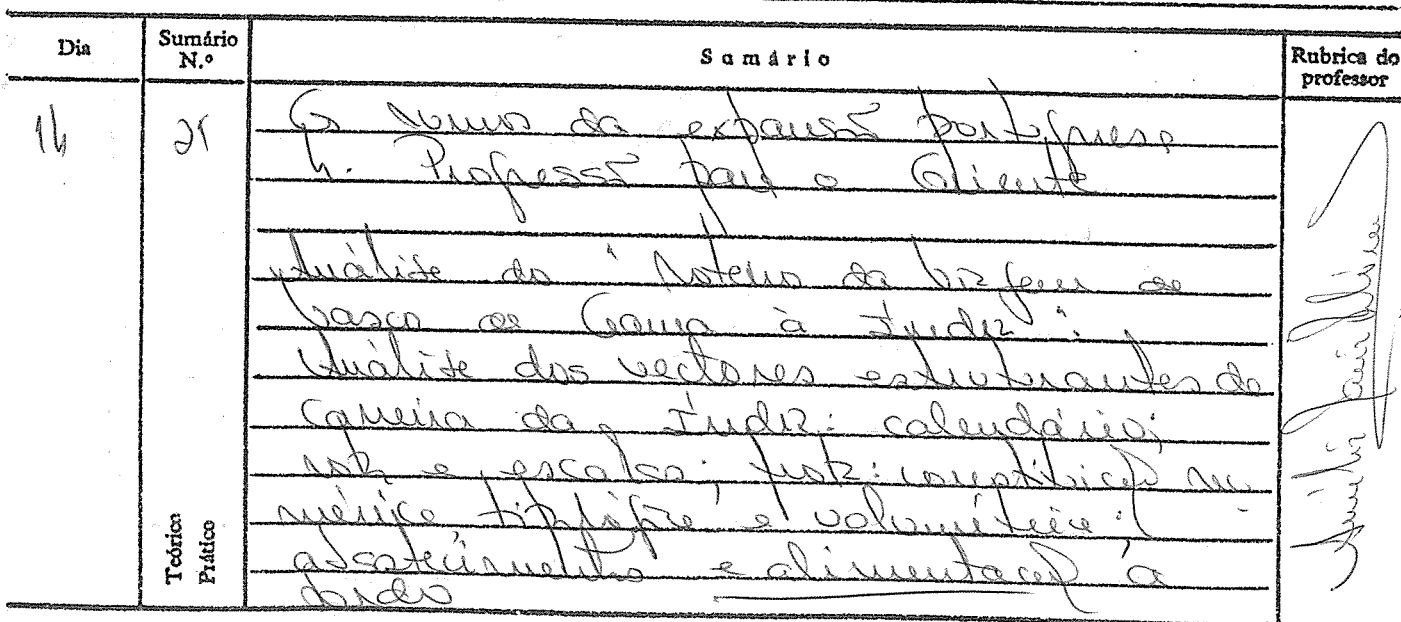 Dia
Sumário N.º
Sumário
Rubrica do professor
14
21
Os rumos da expansão portuguesa
4. Progressão para o Oriente
Análise do "Roteiro da viagem de
Vasco de Gama à Índia".
Análise dos vectores estruturantes da
Carreira da Índia: calendário;
rota e escalas; frota: composição nu-
mérica tipológica e volumétrica;
abastecimento e alimentação a
bordo
Teórico
Prático